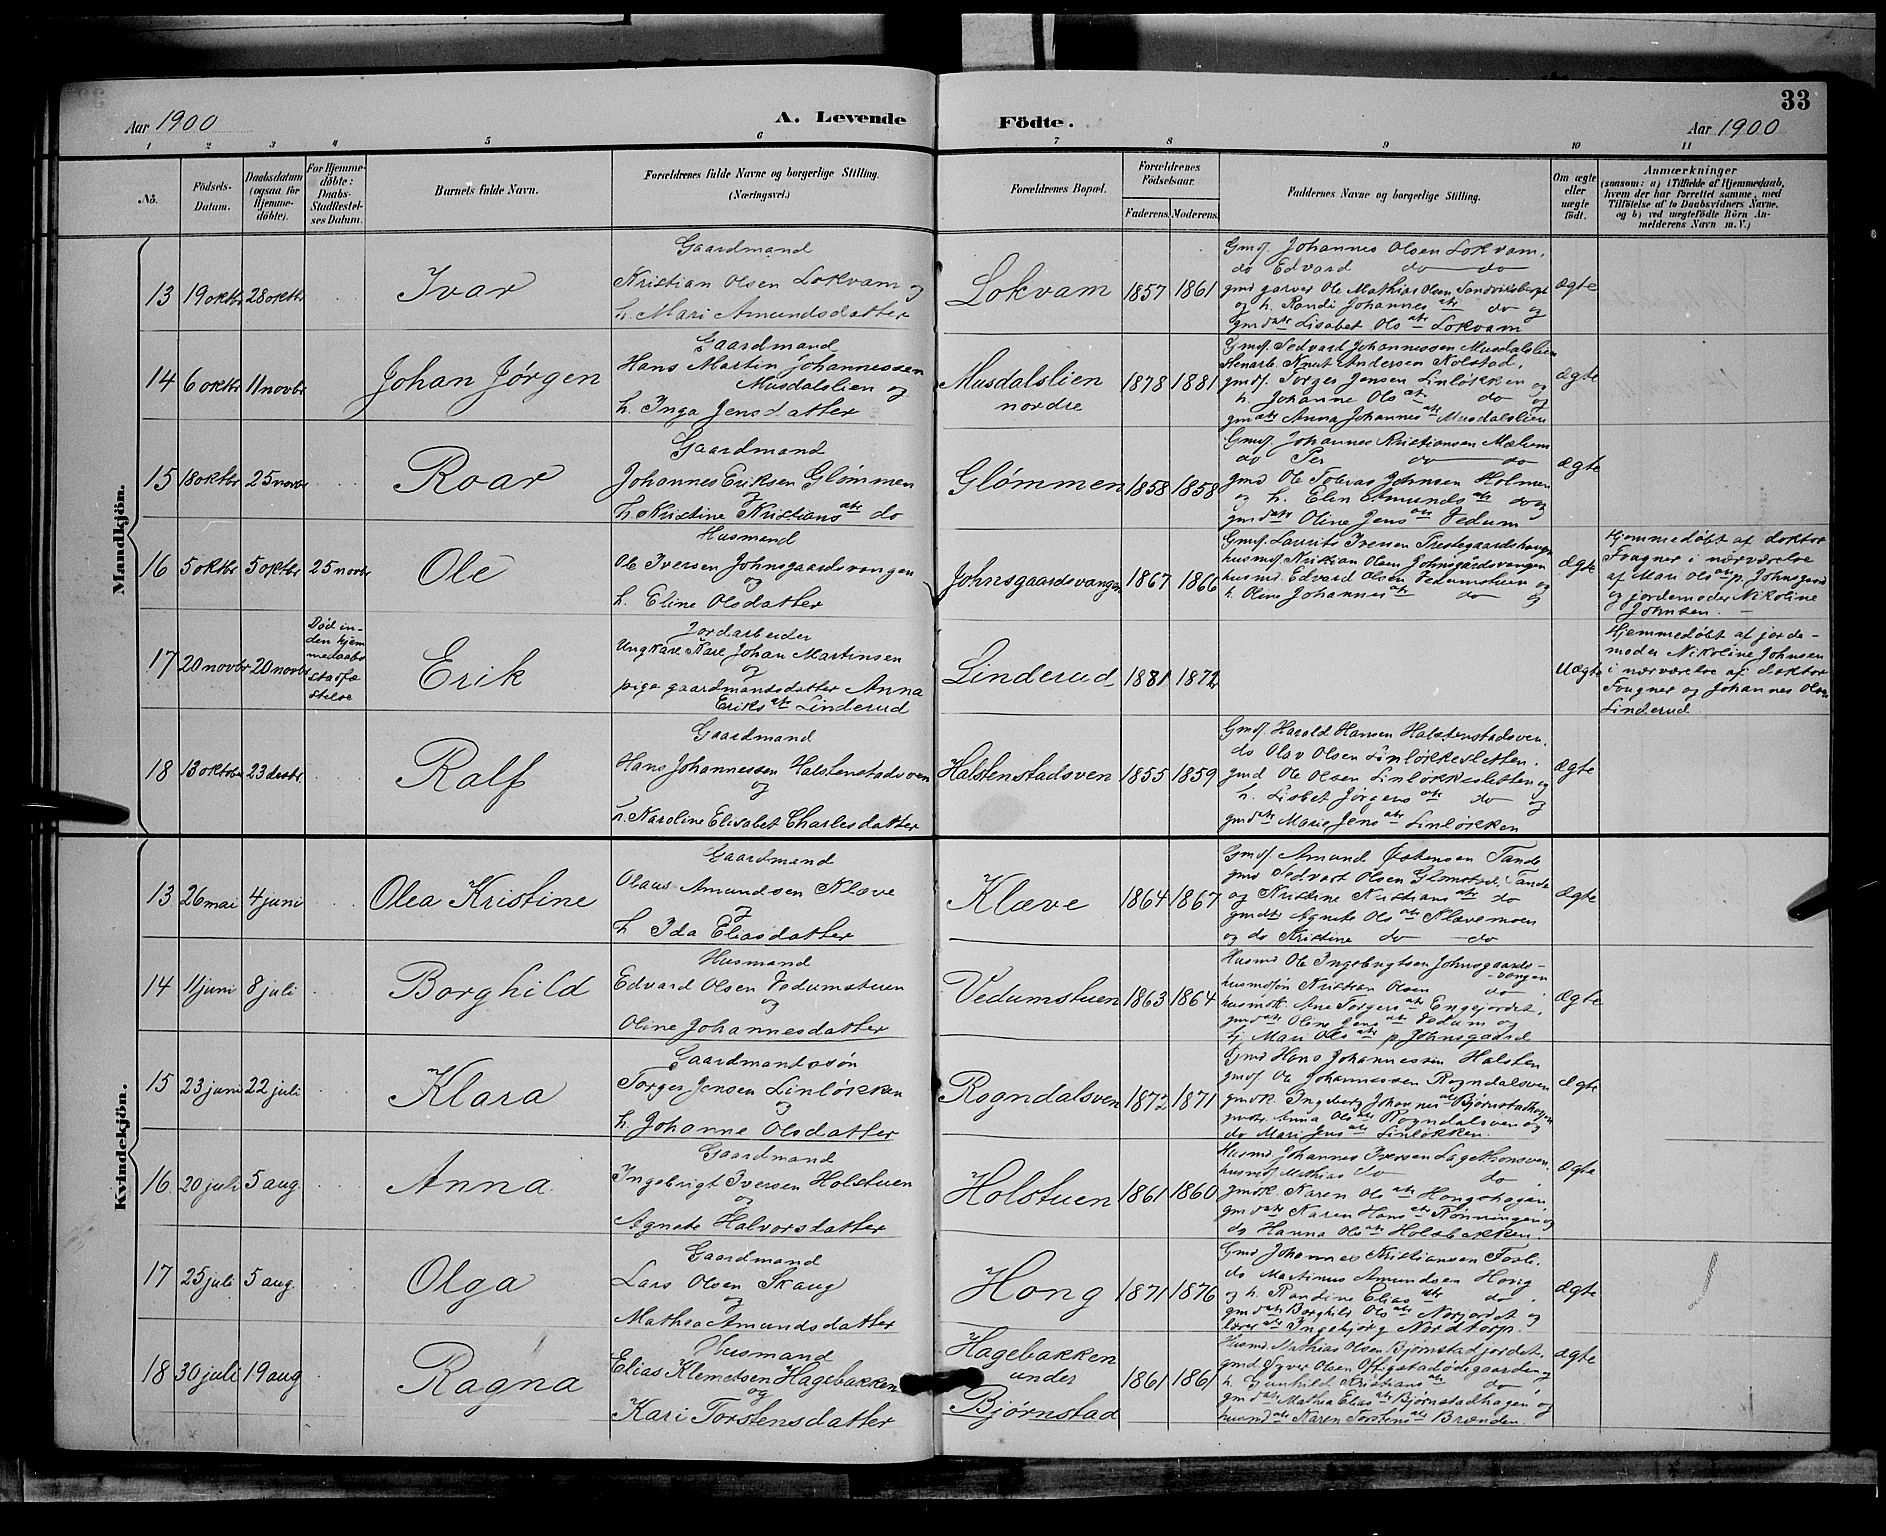 33
Aar 1900
A. Levende Födte.
Aar 1900
1 2 3 4 5 6 7 8 9 10 11
No.
Födsels-Datum.
Daabsdatum (ogsaa for Hjemme-döbte).
For Hjemme-döbte: Daabs-Stadfæstel-ses Datum.
Barnets fulde Navn.
Forældrenes fulde Navne og borgerlige Stilling. (Næringsvei.)
Forældrenes Bopæl.
Forældrenes Födselsaar.
Faderens. Moderens.
Faddernes Navne og borgerlige Stilling.
Om ægte eller uægte födt.
Anmærkninger
(saasom: a) i Tilfælde af Hjemmedaab,
hvem der har forrettet samme, med
Tilföielse af to Daabsvidners Navne.
og b) ved uægtefödte Börn An-
melderens Navn m. V.)
Mandkjön.
13 19 oktbr 28 oktbr
Ivar
Gaardmand
Kristian Olsen Lokvam og
h. Mari Amundsdatter
Lokvam 1857 1861
Gmdf. Johannes Olsen Lokvam,
do Edvard do do
gmd garver Ole Mathias Olsen Sandviksberget
og h. Randi Johannes dtr do og
gmd dtr Lisabet Ols dtr Lokvam
ægte
14 6 oktbr 11 novbr
Johan Jørgen
Gaardmand
Hans Martin Johannessen
Musdalslien og
h. Inga Jensdatter
Musdalslien
nordre
1878 1881
Johannessen Musdalslien
Knut Andersen Kolstad,
gmdf. Torger Jensen Linløkken og
h. Johanne Ols dtr do og
gm dtr Anna Johannes dtr Musdalslien
ægte
15 18 oktbr 25 novbr
Roar
Gaardmand
Johannes Eriksen Glømmen
og
h. Kristine Kristians dtr do
Glømmen 1858 1858
Gmdf. Johannes Kristiansen Mælum
do Per do do
gmd Ole Johnsen Holmen
og h. Elin Amunds dtr do og
gmd dtr Oline Jens dtr Vedum
ægte
16 5 oktbr 5 oktbr 25 novbr
Ole
Husmand
Ole Iversen Johnsgaardsvangen
og
h. Eline Olsdatter
Johnsgaardsvangen 1867 1866
Gmdf. Laurits Iversen Prestegaardshaugen
husmdf Kristian Olsen Johnsgårdsvangen
husmd. Edvard Olsen Vedumstuen og
h. Oline Johannes dtr do og
ægte
Hjemmedöbt af doktor
Fougner i nærværelse
af Mari Ols dtr p. Johnsgaard
og jordemoder Nikoline
Johnsen.
17 20 novbr 20 novbr
Død in-
den hjem-
medaabs
stadfæ-
stelse
Erik
Jordarbeider
Ungkarl Karl Johan Martinsen
og
pige gaardmandsdatter Anna
Eriks dtr Linderud
Linderud 1881 1872
Uægte
Hjemmedöbt af jorde-
moder Nikoline Johnsen
i nærværelse af doktor
Fougner og Johannes Olsen
Linderud
18 13 oktober 23 desbr.
Ralf
Gaardmand
Hans Johannessen Halstenstadsven
og
h. Karoline Elisabet Charlesdatter
Halstenstadsven 1855 1859
Gmdf. Harold Hansen Halstenstadsven,
do Olav Olsen Linløkkesletten.
gmd Ole Olsen Linløkkesletten og
h. Lisbet Jørgens dtr do og
gmd dtr Marie Jens dtr Linløkken
ægte
Kvindekjön.
13 26 mai 4 juni
Olea Kristine
Gaardmand
Olaus Amundsen Klæve
og
h. Ida Eliasdatter
Klæve 1864 1867
Gmdf. Amund Østensen Tande
gmd Sedvart Olsen Glomstad, Tande
og Kristine Kristians dtr do
gmdtr Agnete Ols dtr Klævemoen
og do Kristine do do
Ægte
14 11 juni 8 juli
Borghild
Husmand
Edvard Olsen Vedumstuen
og
Oline Johannesdatter
Vedumstuen 1863 1864
Husmd Ole Ingebrigtsen Johnsgaards-
vangen
husmdsøn Kristian Olsen do
husmdk. Ane Torgers dtr Engejordet,
gmd dtr Oline Jens dtr Vedum og
tj Mari Ols dtr p Johnsgaard
Ægte
15 23 juni 22 juli
Klara
Gaardmandssøn
Torger Jensen Linløkken
og
h. Johanne Olsdatter
Rogndalsven 1872 1871
Gmd Hans Johannessen Halsten
gmdf. Ole Johannessen Rogndalsven
gmdk. Ingeborg Johannes dtr Bjørnstadhagen
gmdtr Anna Ols dtr Rogndalsven og
do Mari Jens dtr Linløkken.
Ægte
16 20 juli 5 aug.
Anna
Gaardmand
Ingebrigt Iversen Holstuen
og
Agnete Halvorsdatter
Holstuen 1861 1860
Husmd. Johannes Iversen
husmdf Mathias do do
gmdk. Karen Ols dtr Hongehagen,
gmd dtr Karen Hans dtr Rønningen og
do Hanna Ols dtr Holsbakken.
Ægte
17 25 juli 5 aug.
Olga
Gaardmand
Lars Olsen Skaug
og
Mathea Amundsdatter
Hong 1871 1876
Gmd Johannes Kristiansen Fosli.
do Martinus Amundsen Hong
og h. Randine Elias dtr do
gmd dtr Borghild Ols dtr Norjordet og
lærer dtr Ingebjørg Nordtorp.
ægte
18 30 juli 19 aug
Ragna
Husmand
Elias Klemetsen Hagebakken
og
Kari Torstensdatter
Hagebakken
under
Bjørnstad
1861 1861
Husmd Mathias Olsen Bjørnstadjordet,
gmd Syver Olsen Offigstadødegaarden og
h. Gunhild Kristians dtr do,
gmd dtr Mathea Elias dtr Bjørnstadhagen og
husmd dtr Karen Torstens dtr Brænden.
ægte